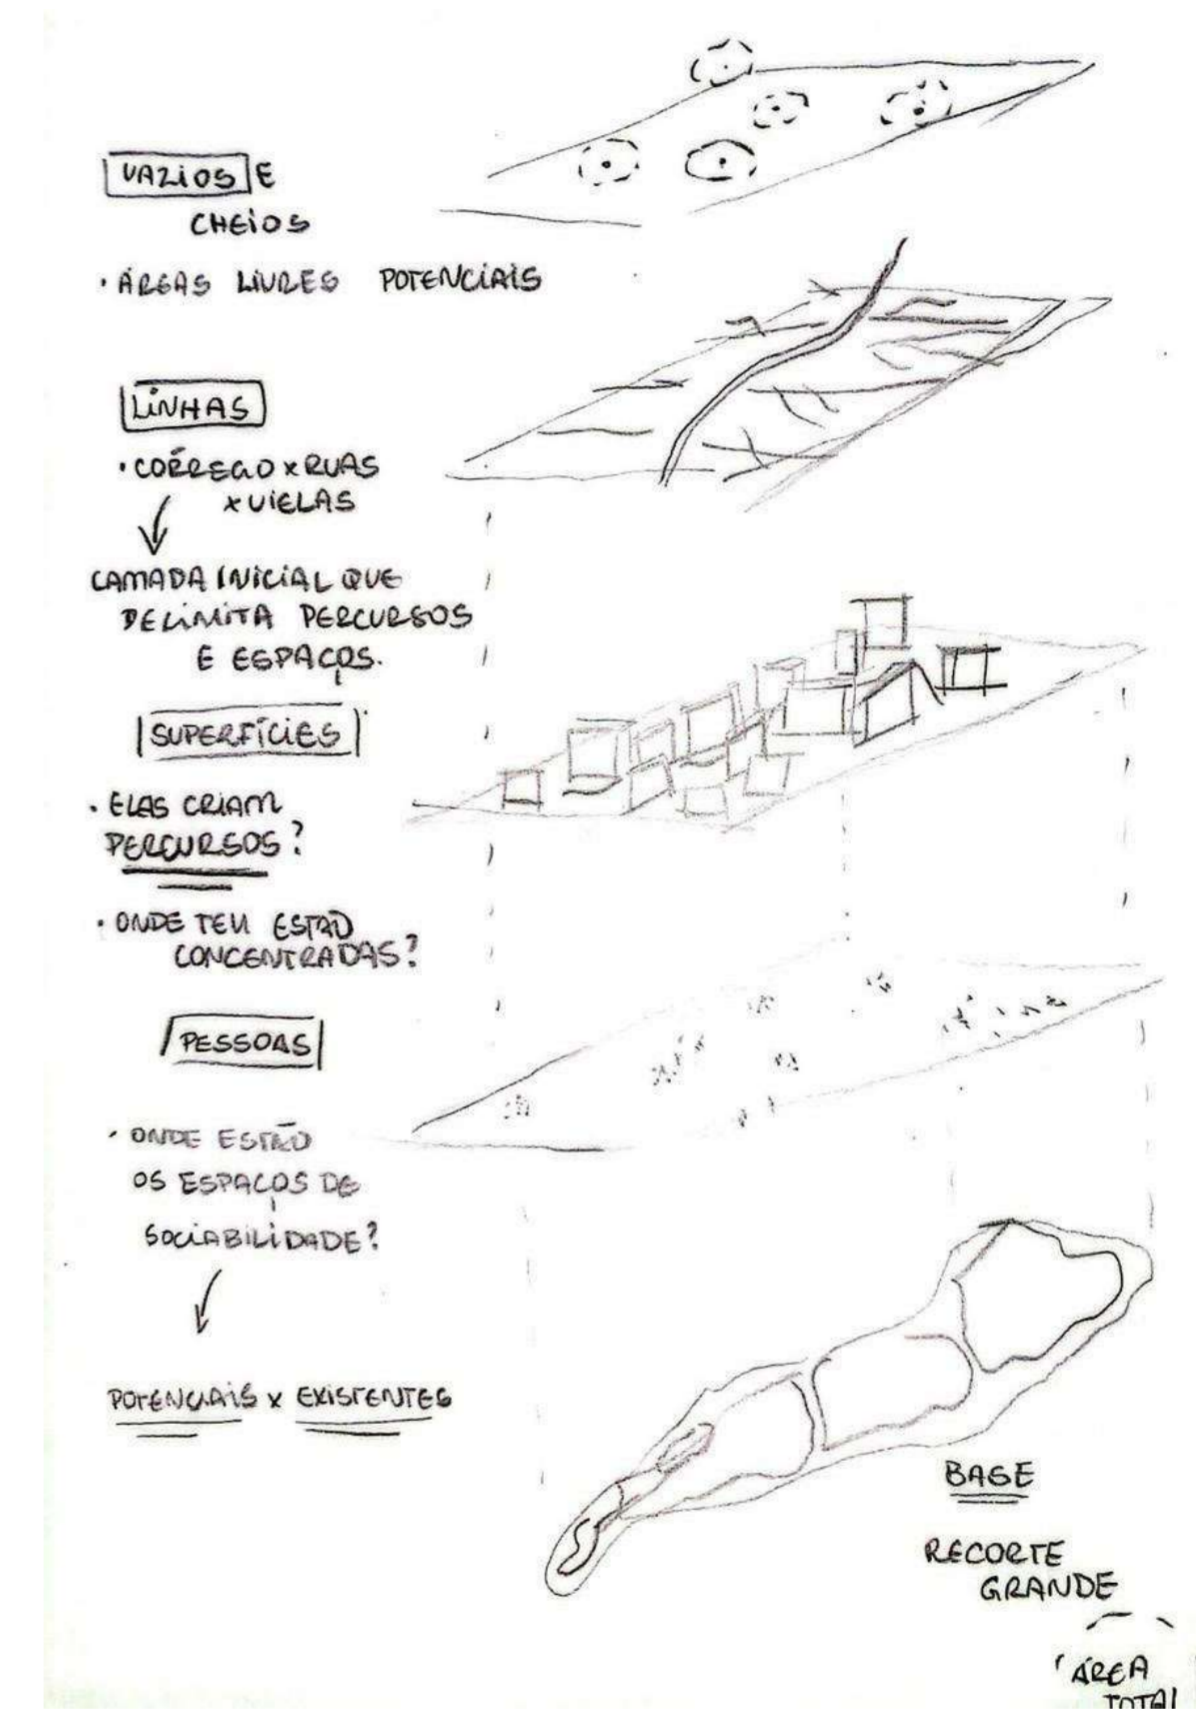 VAZIOS E
CHEIOS
• ÁREAS LIVRES POTENCIAIS
LINHAS
• CÓRREGO x RUAS
x VIELAS
CAMADA INICIAL QUE
DELIMITA PERCURSOS
E ESPAÇOS.
SUPERFÍCIES
• ELAS CRIAM
PERCURSOS?
• ONDE ESTÃO
CONCENTRADAS?
PESSOAS
• ONDE ESTÃO
OS ESPAÇOS DE
SOCIABILIDADE?
POTENCIAIS x EXISTENTES
BASE
RECORTE
GRANDE
ÁREA
TOTAL